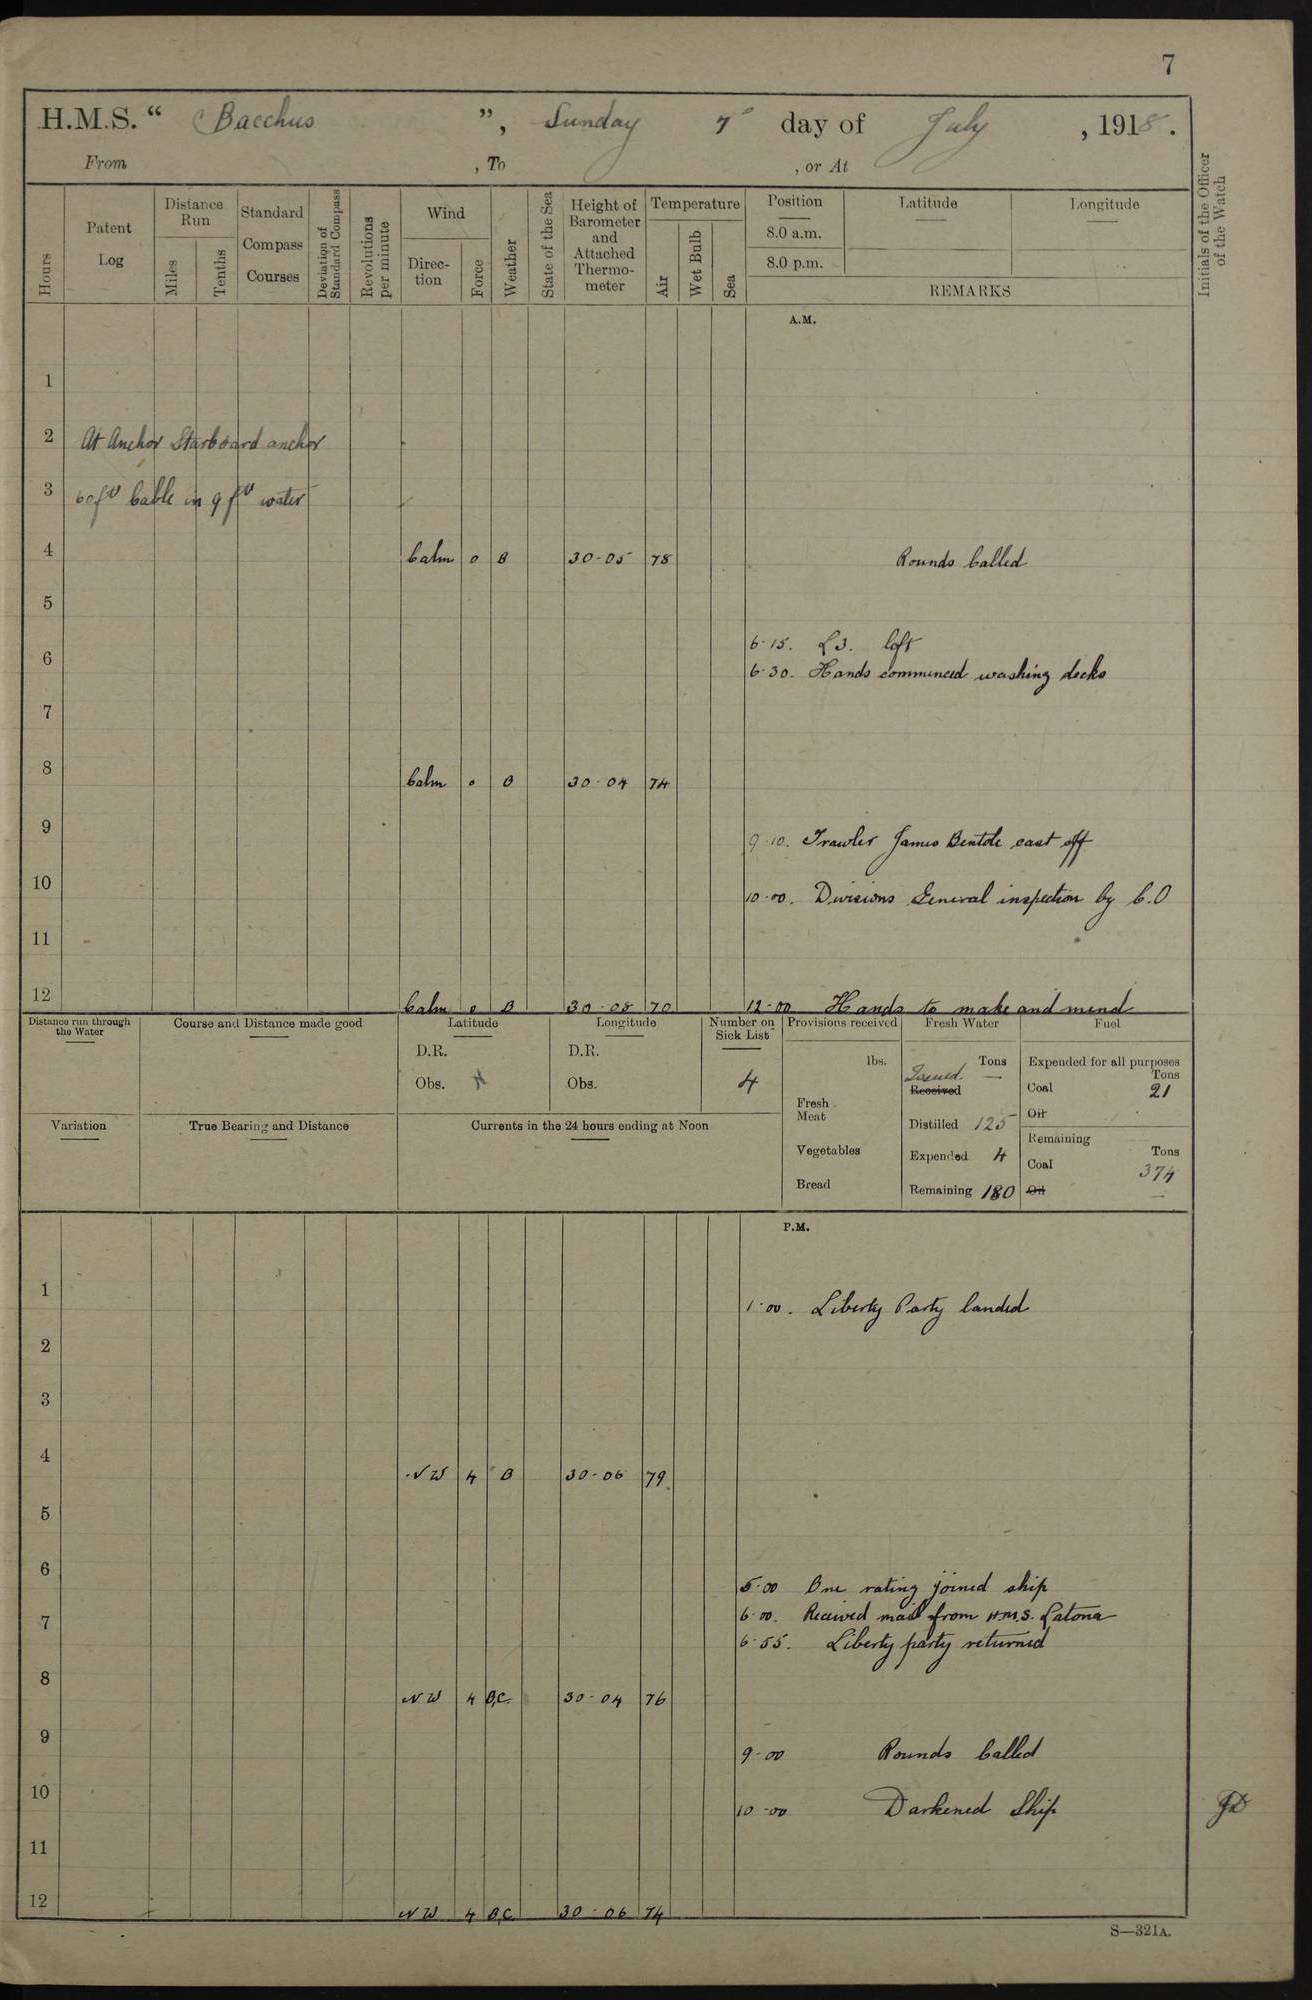 7
H.M.S. “ Bacchus ”, Sunday 7th day of July , 1918.
From , To , or At
Hours
Patent Log
Distance Run
Miles
Tenths
Standard Compass Courses
Deviation of Standard Compass
Revolutions per minute
Wind
Direc-tion
Force
Weather
State of the Sea
Height of Barometer and Attached Thermo-meter
Temperature
Air
Wet Bulb
Sea
Position
8.0 a.m.
8.0 p.m.
Latitude
Longitude
REMARKS
Initials of the Officer of the Watch
A.M.
1
2 At Anchor Starboard anchor
3 60 fms Cable in 9 fms water
4 Calm 0 B 30-05 78 Rounds Called
5
6-15. left
6
6-30. Hands commenced washing decks
7
8 Calm 0 B 30-04 74
9
9-10. Trawler James Bentole cast off
10
10-00. Divisions General inspection by C.O
11
12 Calm 0 B 30-08 70 12-00 Hands to make and mend
Distance run through the Water
Course and Distance made good
Latitude
D.R.
Obs.
Longitude
D.R.
Obs.
Number on Sick List
4
Provisions received
lbs.
Fresh Meat
Vegetables
Bread
Fresh Water
Tons
Received —
Distilled 125
Expended 4
Remaining 180
Fuel
Expended for all purposes
Tons
Coal 21
Oil
Remaining
Tons
Coal 374
Oil —
Variation
True Bearing and Distance
Currents in the 24 hours ending at Noon
P.M.
1
1-00. Liberty Party landed
2
3
4 NW 4 B 30-06 79
5
6
5-00 One rating joined ship
6-00. Received mail from H.M.S. Latona
7
6-55. Liberty party returned
8 NW 4 B,C. 30-04 76
9
9-00 Rounds Called
10
10-00 Darkened Ship
11
12 NW 4 B,C. 30-06 74
S—321A.